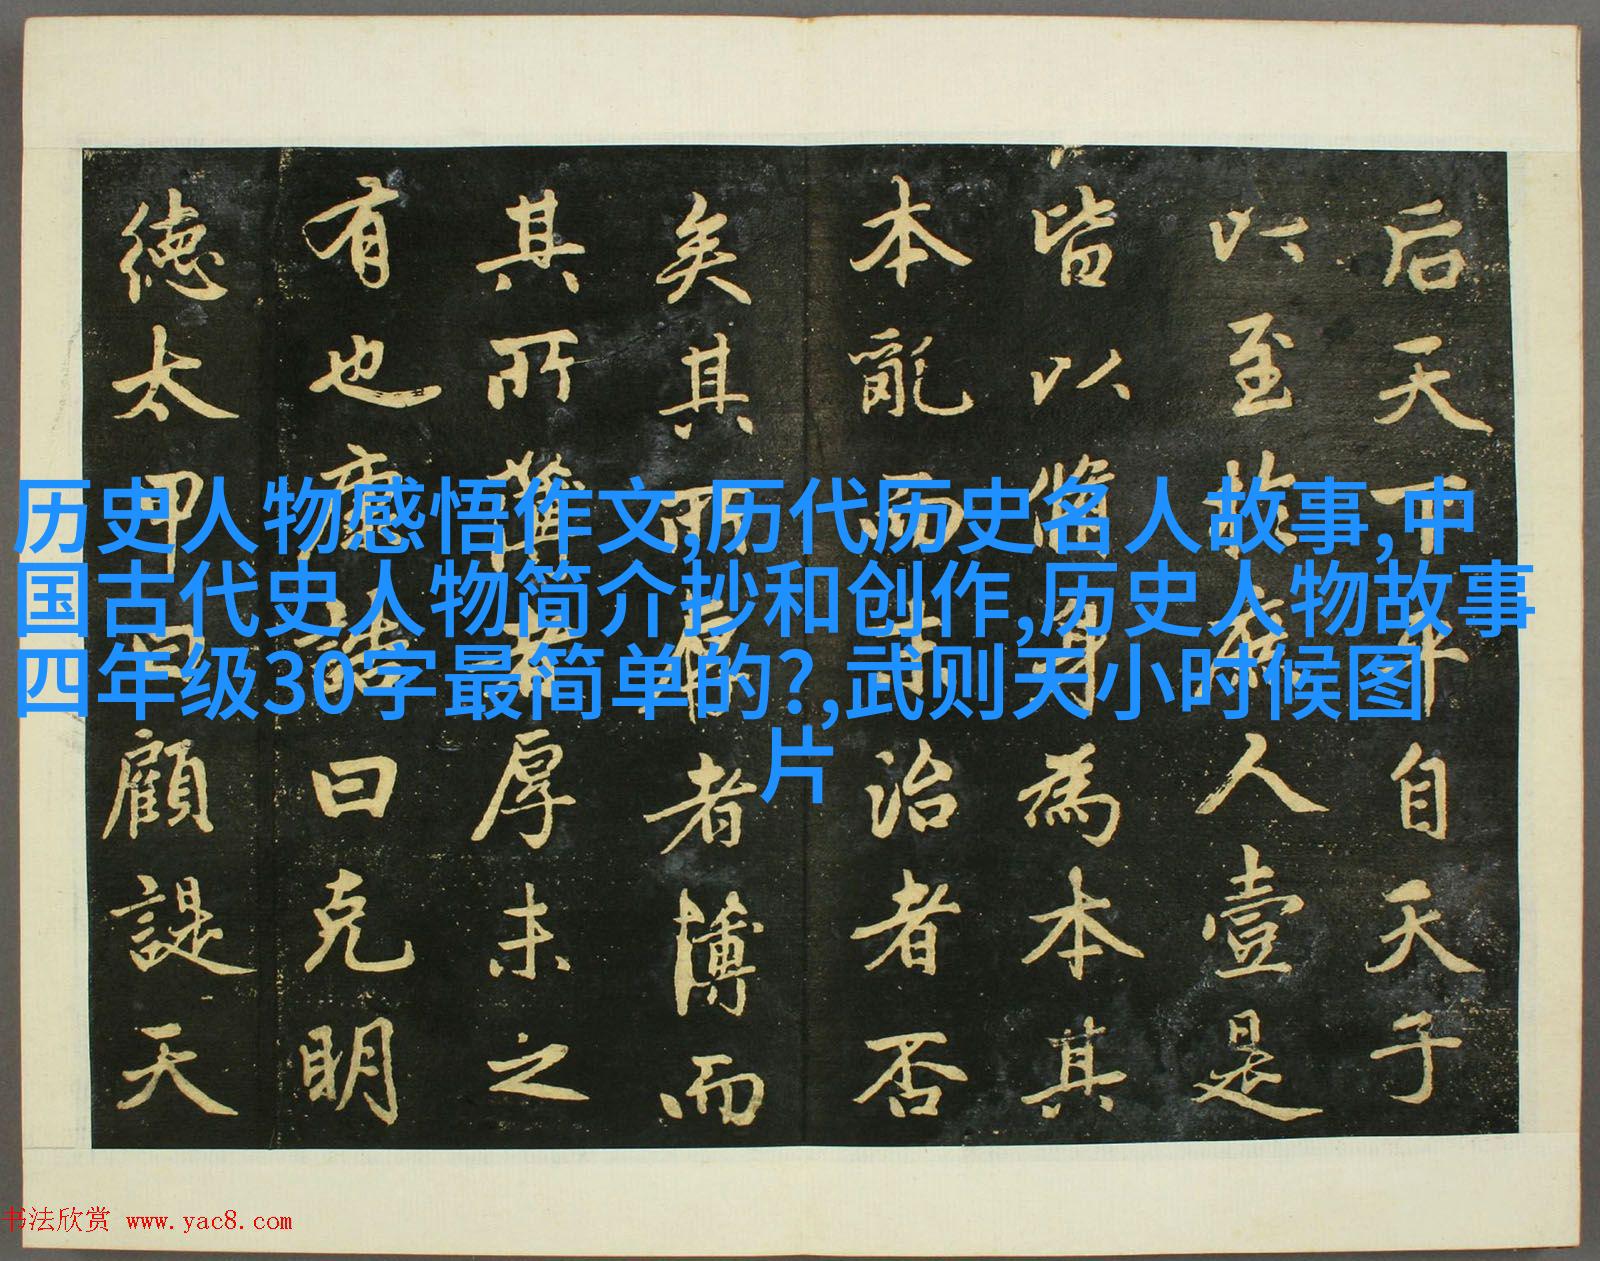 后天下平自天子
以至於庶人壹是
皆以脩身為本其
本亂而末治者否
矣其所厚者薄而
其所薄者厚未之
有也康誥曰克明
德太甲曰顧諟天
历史人物感悟作文,历代历史名人故事,中
国古代史人物简介抄和创作,历史人物故事
四年级30字最简单的?,武则天小时候图
片
书法欣赏 www.yac8.com